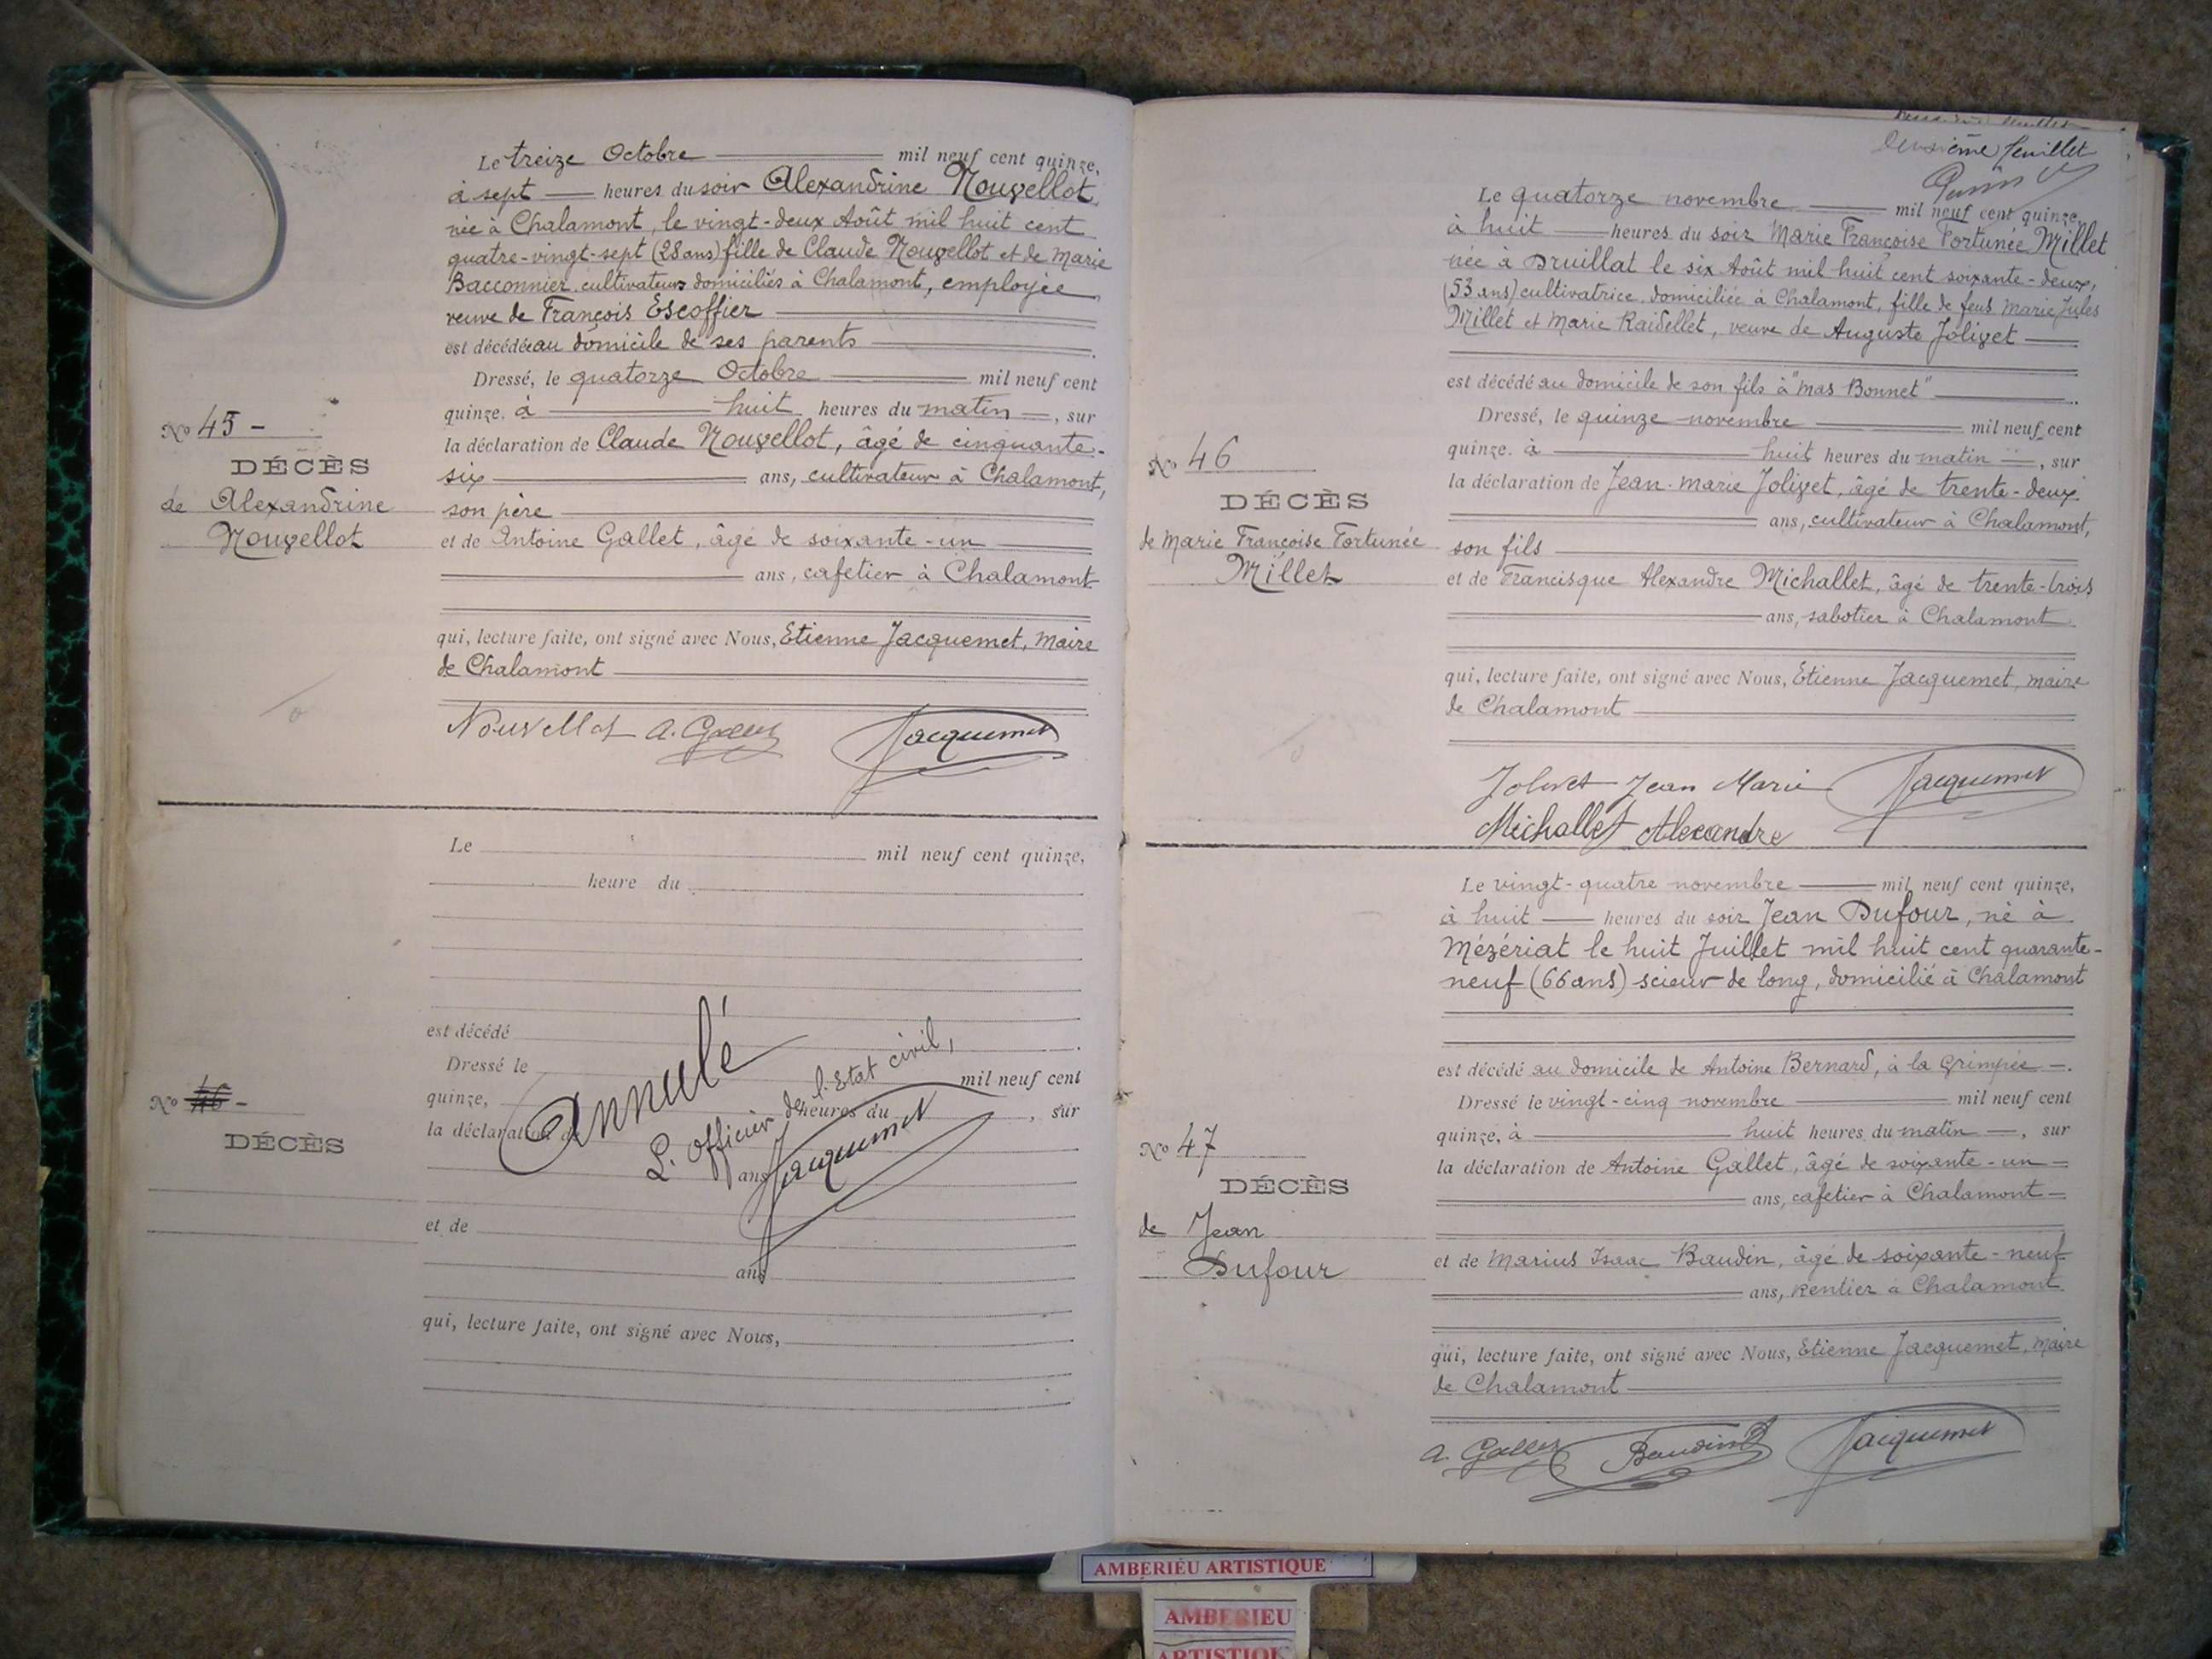 Le treize Octobre mil neuf cent quinze,
à sept heures du soir Alexandrine Nouvellot,
née à Chalamont, le vingt-deux Août mil huit cent
quatre-vingt-sept (28 ans) fille de Claude Nouvellot et de Marie
Bacconnier, cultivateurs domiciliés à Chalamont, employée
veuve de François Escoffier
est décédée au domicile de ses parents
Dressé, le quatorze Octobre mil neuf cent
quinze. à huit heures du matin, sur
No 45 -
DÉCÈS
de Alexandrine
Nouvellot
la déclaration de Claude Nouvellot, âgé de cinquante-
six ans, cultivateur à Chalamont,
son père
et de Antoine Gallet, âgé de soixante-un
ans, cafetier à Chalamont
qui, lecture faite, ont signé avec Nous, Etienne Jacquemet, Maire
de Chalamont
Nouvellot A. Gallet Jacquemet
Le mil neuf cent quinze,
heure du
est décédé
Dressé le mil neuf cent
quinze, heures du , sur
la déclaration de
ans
No 46 -
DÉCÈS
Annulé
L'Officier de l'Etat civil,
Jacquemet
et de
ans
qui, lecture faite, ont signé avec Nous,
Deuxième feuillet
Le quatorze novembre mil neuf cent quinze,
à huit heures du soir Marie Françoise Fortunée Millet
née à Druillat le six Août mil huit cent soixante-deux,
(53 ans) cultivatrice domiciliée à Chalamont, fille de feus Marie Jules
Millet et Marie Raidellet, veuve de Auguste Jolivet
est décédé au domicile de son fils à "Mas Bonnet"
Dressé, le quinze novembre mil neuf cent
quinze. à huit heures du matin, sur
No 46
DÉCÈS
de Marie Françoise Fortunée
Millet
la déclaration de Jean-Marie Jolivet, âgé de trente-deux
ans, cultivateur à Chalamont,
son fils
et de Francisque Alexandre Michallet, âgé de trente-trois
ans, sabotier à Chalamont
qui, lecture faite, ont signé avec Nous, Etienne Jacquemet, maire
de Chalamont
Jolivet Jean Marie Jacquemet
Michallet Alexandre
Le vingt-quatre novembre mil neuf cent quinze,
à huit heures du soir Jean Dufour, né à
Mézériat le huit Juillet mil huit cent quarante-
neuf (66 ans) scieur de long, domicilié à Chalamont
est décédé au domicile de Antoine Bernard, à la Grimpée
Dressé le vingt-cinq novembre mil neuf cent
quinze, à huit heures du matin, sur
No 47
DÉCÈS
de Jean
Dufour
la déclaration de Antoine Gallet, âgé de soixante-un
ans, cafetier à Chalamont
et de Marius Isaac Baudin, âgé de soixante-neuf
ans, Rentier à Chalamont
qui, lecture faite, ont signé avec Nous, Etienne Jacquemet, Maire
de Chalamont
A. Gallet Baudin Jacquemet
AMBERIEU ARTISTIQUE
AMBERIEU
ARTISTIQUE